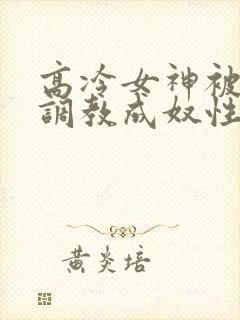 高冷女神被
調教成奴性
黄炎培